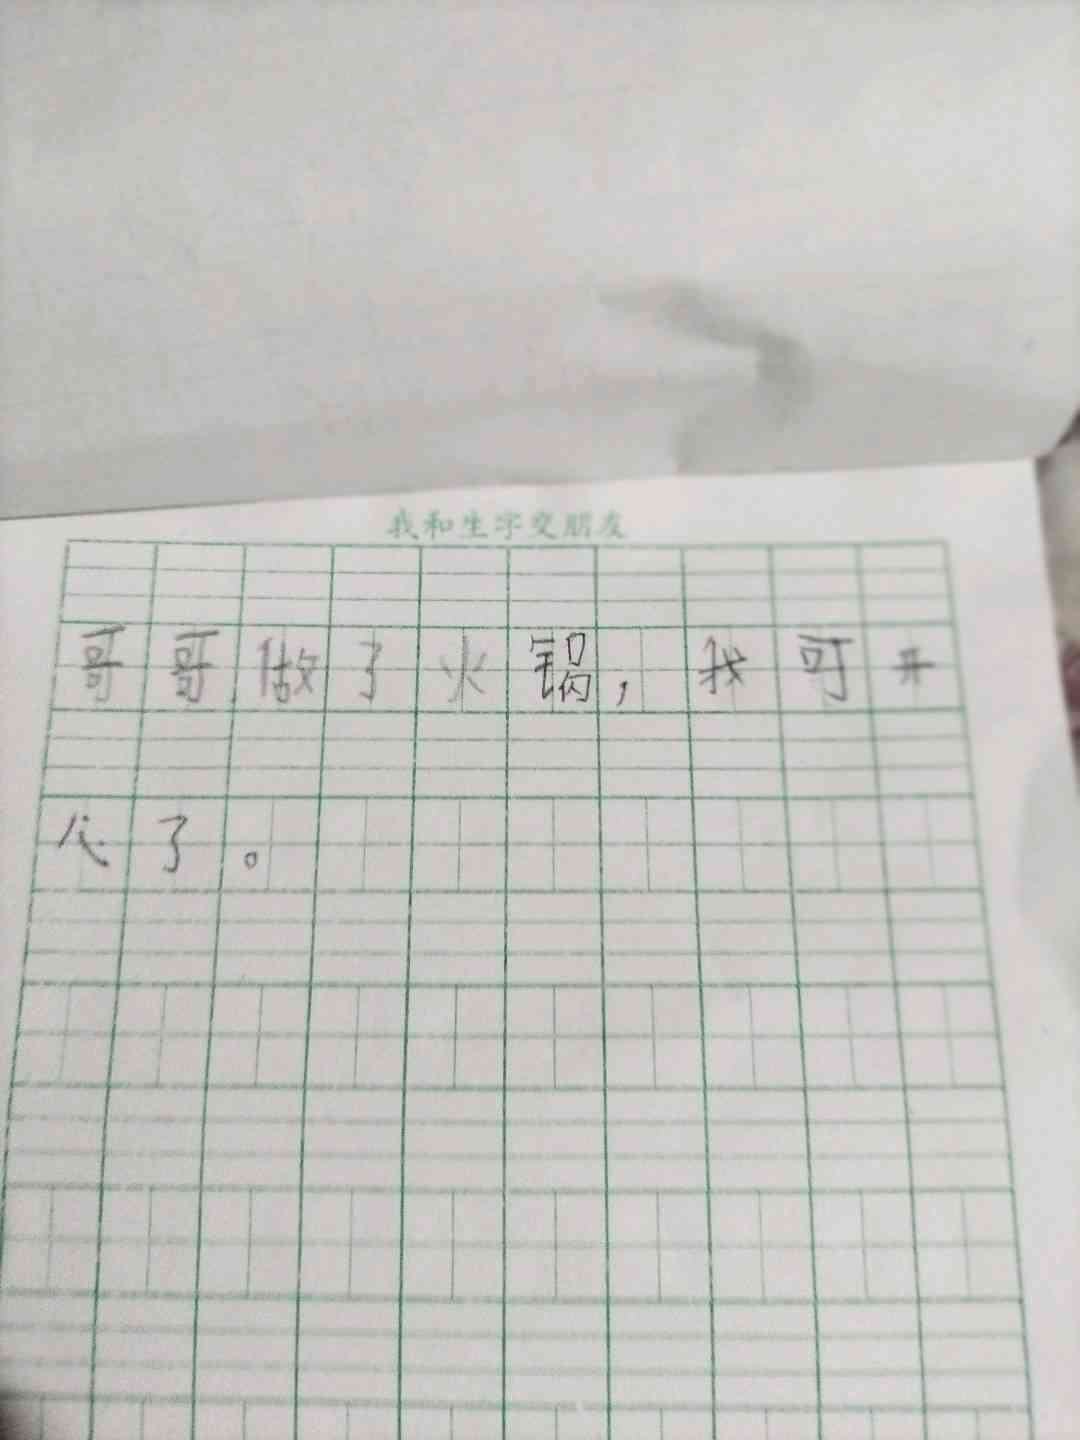 我和生字交朋友
哥哥做了火锅，我可开
心了。